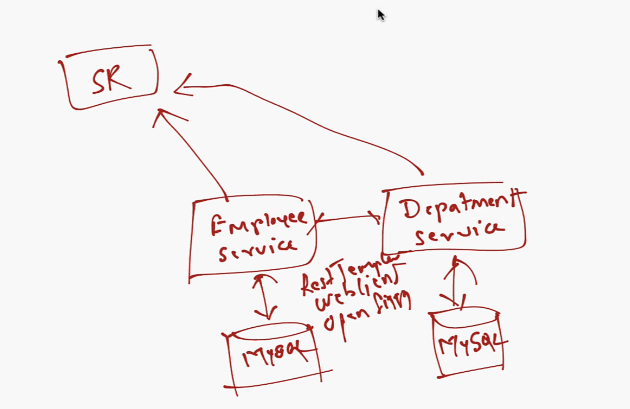 SR
Employee
service
Depatment
service
Rest Templet
webclient
open fign
MySQL
MySQL